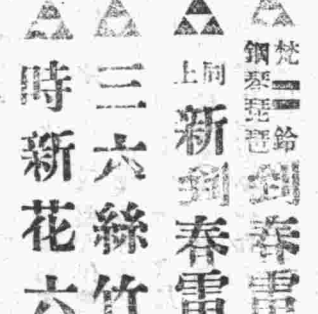 梵〓鈴
鋼琴琵琶
到春雷
同上
新到春雷
三六絲竹
時新花六